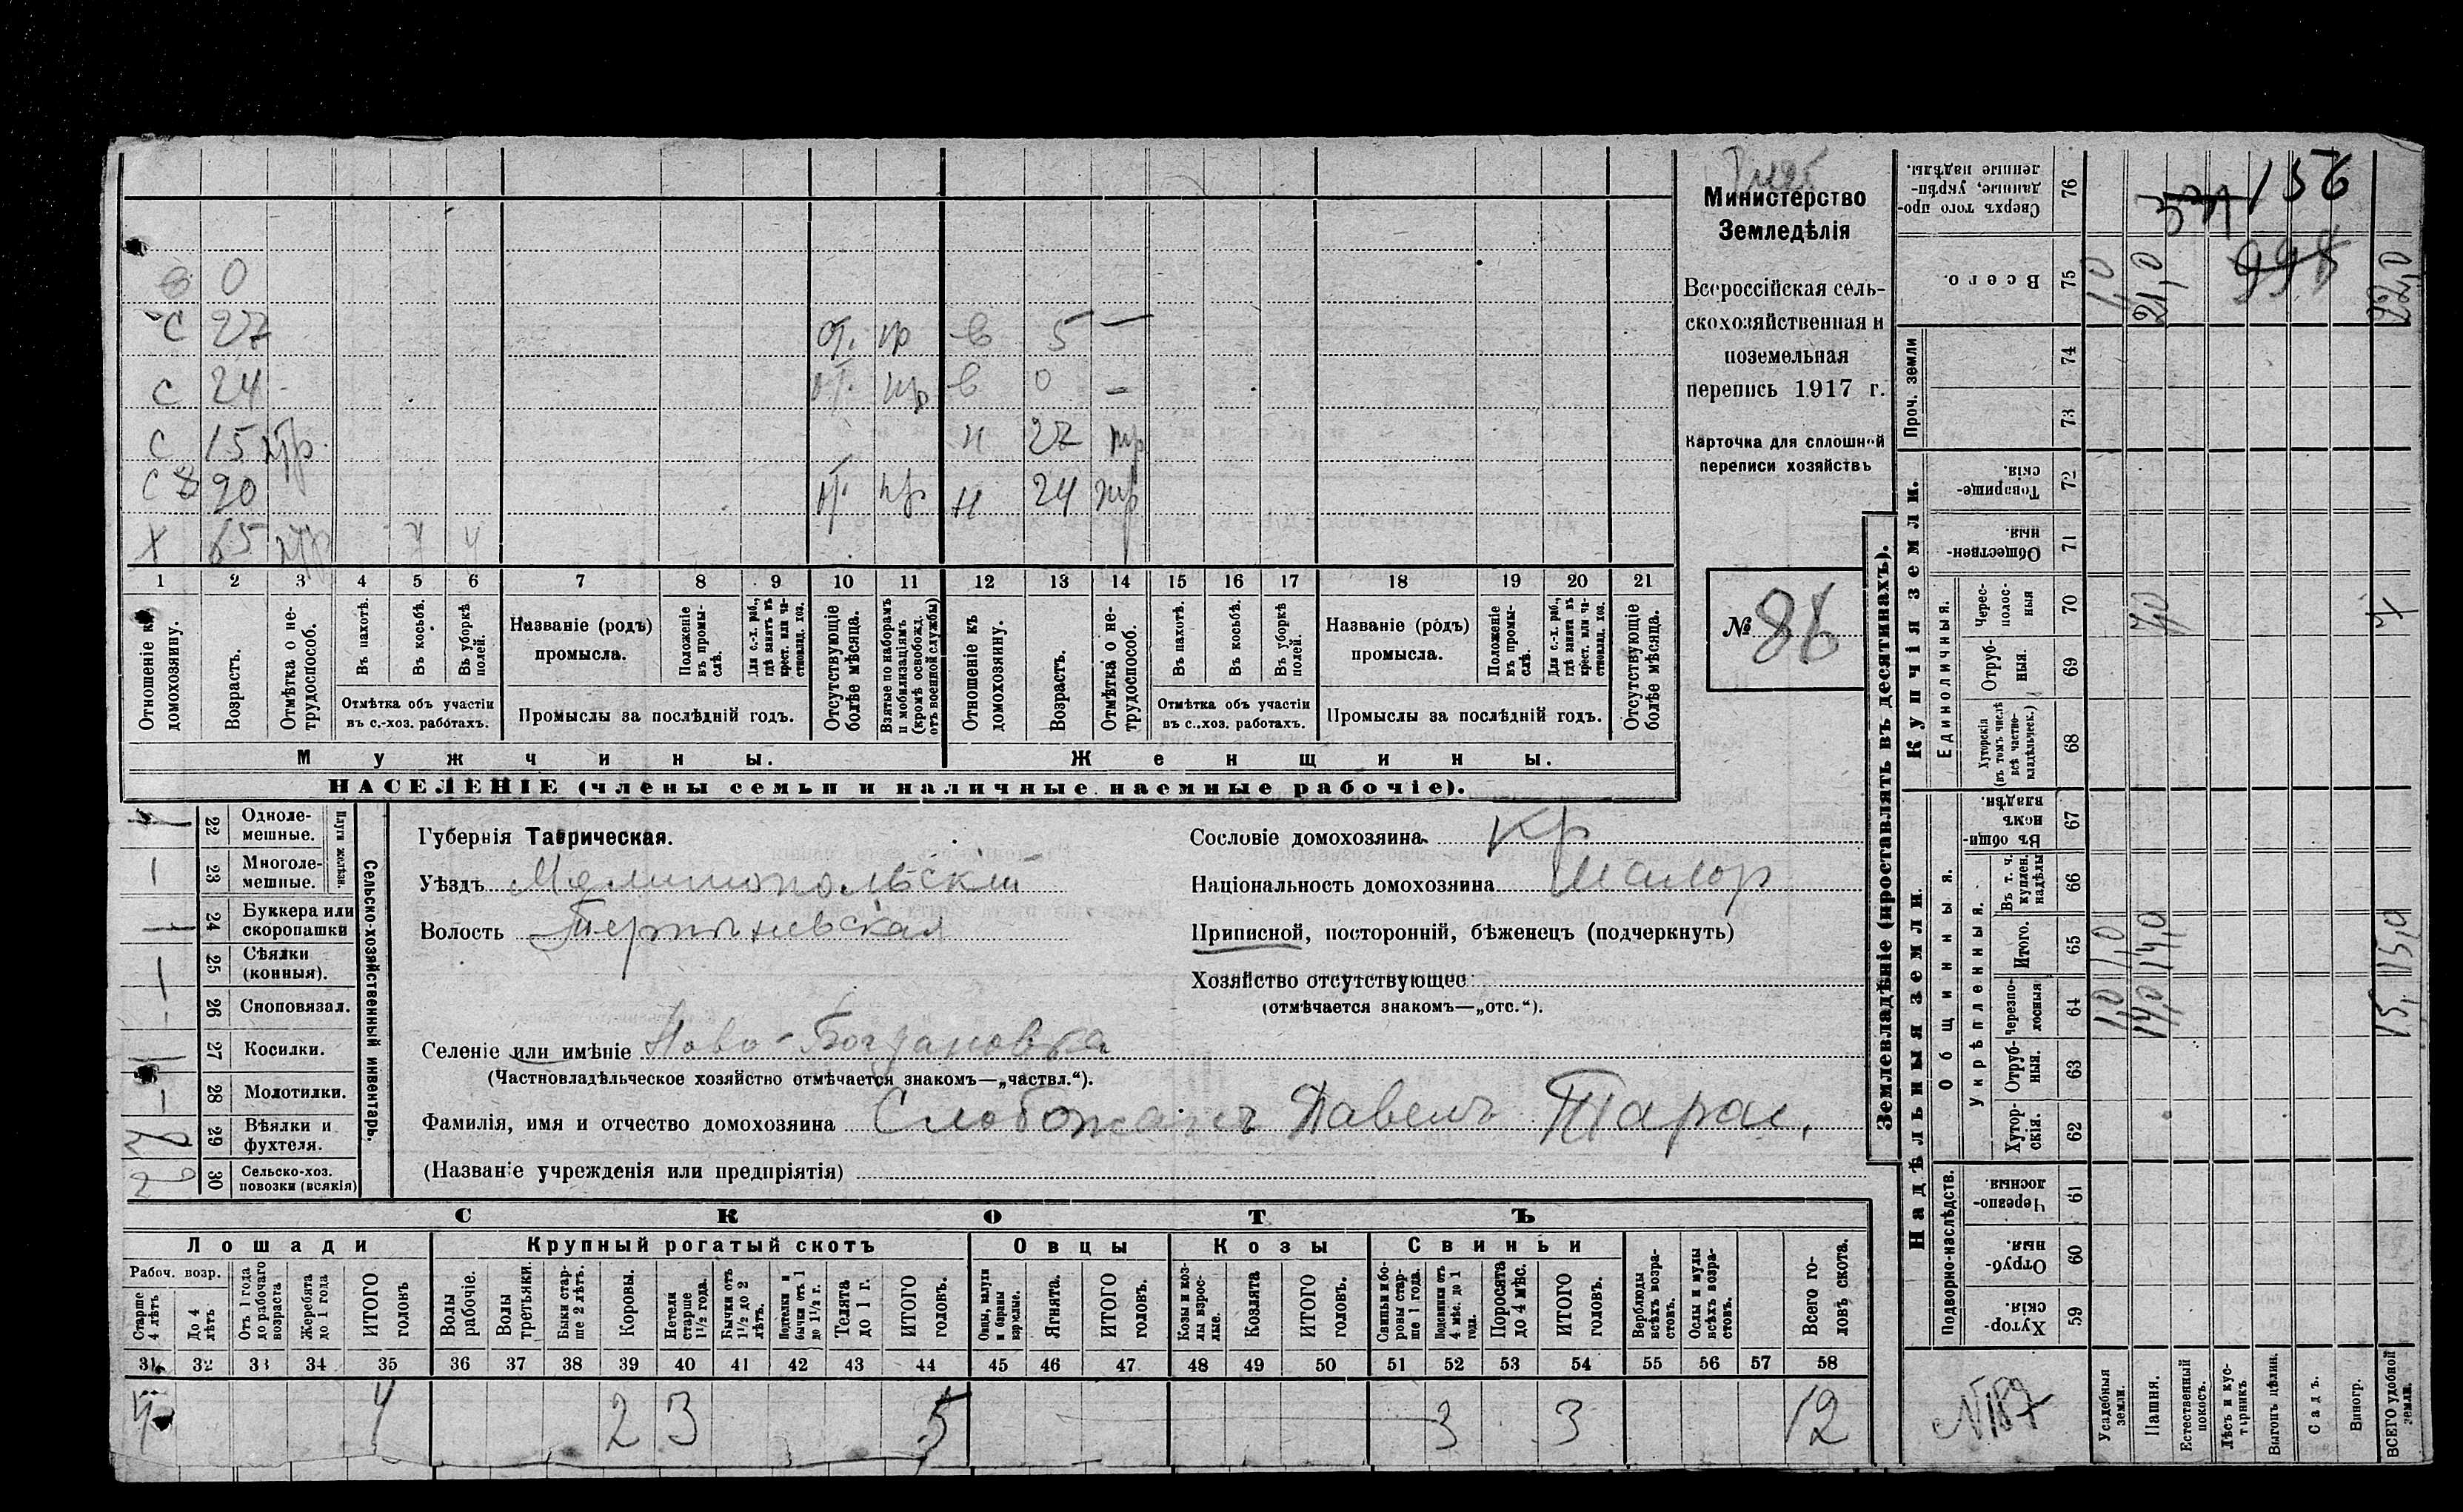 Министерство
Земледѣлія
Всероссійская сель-
скохозяйственная и
поземельная
перепись 1917 г.
Карточка для сплошной
переписи хозяйствъ
№ 86
0
с 27 от. пр в 5 —
с 24 - от. пр в 0 —
с 15 н 27
с 20 от. пр н 24
х 65
1 2 3 4 5 6 7 8 9 10 11 12 13 14 15 16 17 18 19 20 21
Отношеніе къ домохозяину.
Возрастъ.
Отмѣтка о не-трудоспособ.
Въ пахотѣ.
Въ косьбѣ.
Въ уборкѣ полей.
Отмѣтка объ участіи
въ с.-хоз. работахъ.
Названіе (родъ)
промысла.
Положеніе въ промы-слѣ.
Для с.-х. раб., гдѣ занятъ въ крест. или ча-стновлад. хоз.
Промыслы за послѣдній годъ.
Отсутствующіе болѣе мѣсяца.
Взятые по наборамъ и мобилизаціямъ (кромѣ освобожд. отъ военной службы)
Отношеніе къ домохозяину.
Возрастъ.
Отмѣтка о не-трудоспособ.
Въ пахотѣ.
Въ косьбѣ.
Въ уборкѣ полей.
Отмѣтка объ участіи
въ с.-хоз. работахъ.
Названіе (родъ)
промысла.
Положеніе въ промы-слѣ.
Для с.-х. раб., гдѣ занята въ крест. или ча-стновлад. хоз.
Промыслы за послѣдній годъ.
Отсутствующіе болѣе мѣсяца.
Мужчины. Женщины.
НАСЕЛЕНІЕ (члены семьи и наличные наемные рабочіе).
22 Одноле-мешные.
23 Многоле-мешные.
Плуги желѣзн.
24 Буккера или скоропашки
25 Сѣялки (конныя).
26 Сноповязал.
27 Косилки.
28 Молотилки.
29 Вѣялки и фухтеля.
30 Сельско-хоз. повозки (всякія)
Сельско-хозяйственный инвентарь.
Губернія Таврическая.
Уѣздъ Мелитопольскій
Волость Терпѣніевская
Селеніе или имѣніе Ново-Богдановка
(Частновладѣльческое хозяйство отмѣчается знакомъ—„частвл.“).
Фамилія, имя и отчество домохозяина Слобожанъ Павелъ Тарас.
(Названіе учрежденія или предпріятія)
Сословіе домохозяина Кр
Національность домохозяина Малор
Приписной, посторонній, бѣженецъ (подчеркнуть)
Хозяйство отсутствующее
(отмѣчается знакомъ—„отс.“).
СКОТЪ
Лошади Крупный рогатый скотъ Овцы Козы Свиньи
Рабоч. возр.
Старше 4 лѣтъ
До 4 лѣтъ
Отъ 1 года до рабочаго возраста
Жеребята до 1 года
ИТОГО головъ
Волы рабочіе.
Волы третьяки.
Быки стар-ше 2 лѣтъ.
Коровы.
Нетели старше 1½ года.
Бычки отъ 1½ до 2 лѣтъ.
Подтелки и бычки отъ 1 до 1½ г.
Телята до 1 г.
ИТОГО головъ.
Овцы, валухи и бараны взрослые.
Ягнята.
ИТОГО головъ.
Козы и коз-лы взрос-лые.
Козлята
ИТОГО головъ.
Свиньи и бо-ровы стар-ше 1 года.
Подсвинки отъ 4 мѣс. до 1 года.
Поросята до 4 мѣс.
ИТОГО головъ.
Верблюды всѣхъ возра-стовъ.
Ослы и мулы всѣхъ возра-стовъ.
Всего го-ловъ скота.
31 32 33 34 35 36 37 38 39 40 41 42 43 44 45 46 47 48 49 50 51 52 53 54 55 56 57 58
4 4 2 3 5 3 3 12
Землевладѣніе (проставлять въ десятинахъ).
Надѣльныя земли. Купчія земли. Проч. земли
Подворно-наслѣдств.
Общинныя.
Укрѣпленныя.
Единоличныя.
59 Хутор-скія
60 Отруб-ныя
61 Черезпо-лосныя.
62 Хутор-скія.
63 Отруб-ныя.
64 Черезпо-лосныя
65 Итого.
66 Въ т. ч. куплен. надѣлы
67 Въ общин-номъ владѣн.
68 Хуторскія (въ томъ числѣ всѣ частно-владѣльческ.)
69 Отруб-ныя.
70 Черес-полос-ныя
71 Обществен-ныя.
72 Товарище-скія.
73
74
75 Всего.
76 Сверхъ того про-данные, укрѣп-ленные надѣлы.
Усадебныя земли. 1,0 1,0 1,0
Пашня. 14,0 14,0 7,0 21,0
Естественный покосъ.
Лѣсъ и кус-тарникъ
Выгонъ цѣлин.
Садъ.
Виногр.
ВСЕГО удобной земли. 15, 15,0 7 22,0
156
998
N187